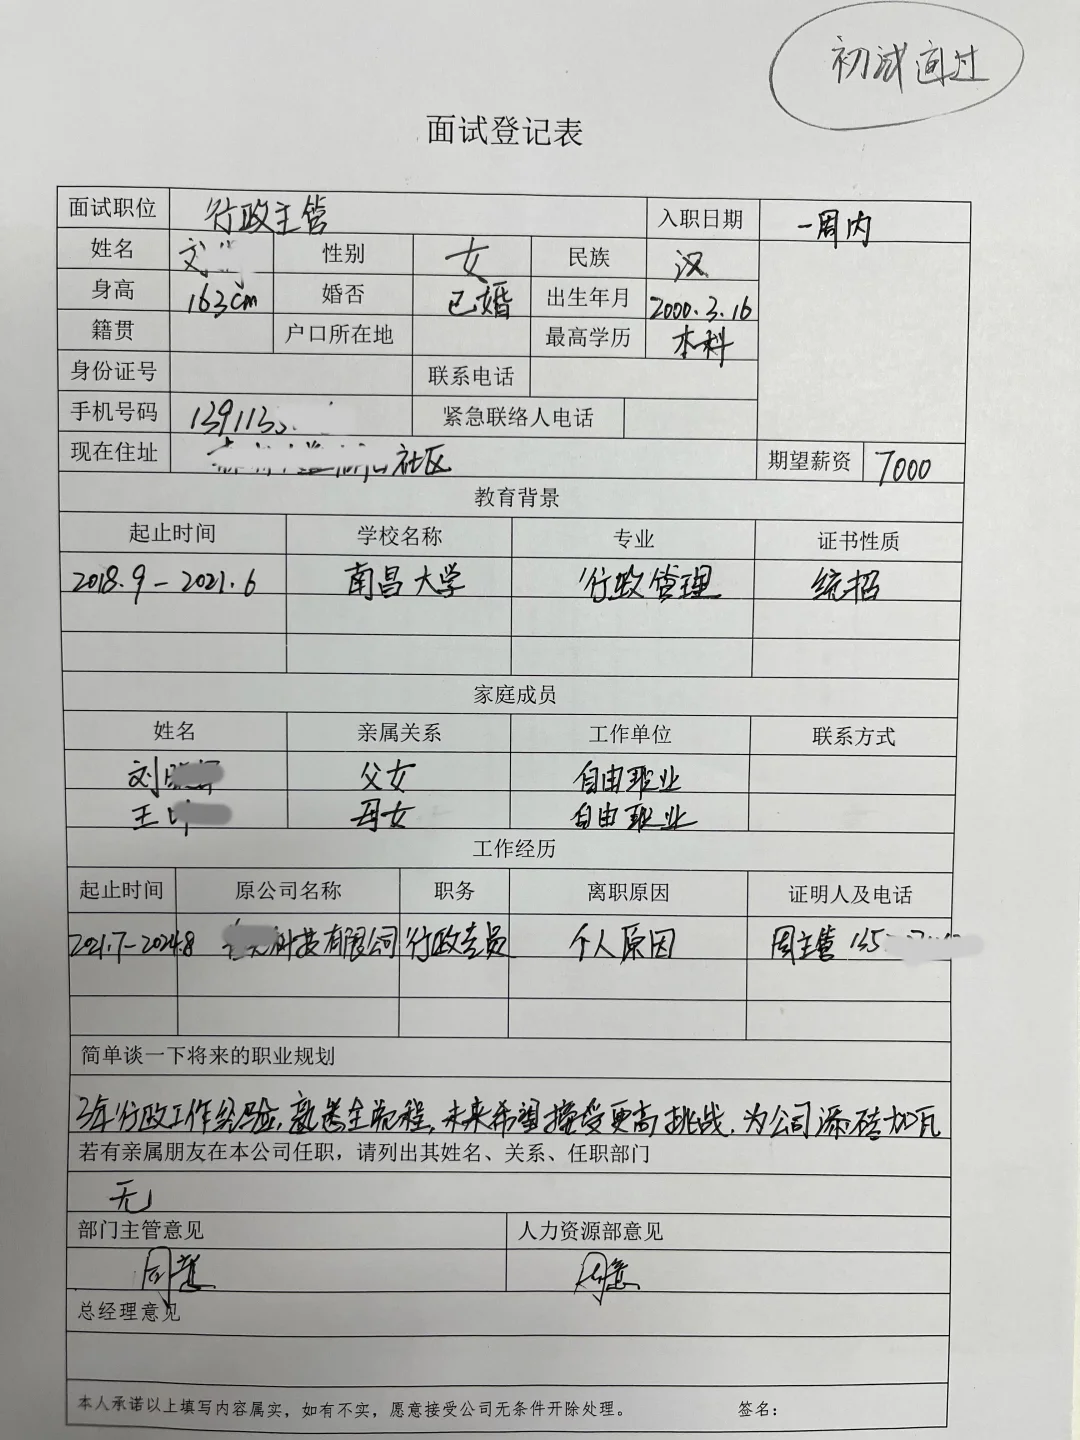 初试通过
面试登记表
面试职位 行政主管 入职日期 一周内
姓名 刘 性别 女 民族 汉
身高 163cm 婚否 已婚 出生年月 2000.3.16
籍贯 户口所在地 最高学历 本科
身份证号 联系电话
手机号码 139113 紧急联络人电话
现在住址 社区 期望薪资 7000
教育背景
起止时间 学校名称 专业 证书性质
2018.9-2021.6 南昌大学 行政管理 统招
家庭成员
姓名 亲属关系 工作单位 联系方式
刘 父女 自由职业
王 母女 自由职业
工作经历
起止时间 原公司名称 职务 离职原因 证明人及电话
2021.7-2024.8 科技有限公司 行政专员 个人原因 周主管 135
简单谈一下将来的职业规划
3年行政工作经验,熟悉全流程,未来希望接受更高挑战,为公司添砖加瓦
若有亲属朋友在本公司任职，请列出其姓名、关系、任职部门
无
部门主管意见 人力资源部意见
同意 同意
总经理意见
本人承诺以上填写内容属实，如有不实，愿意接受公司无条件开除处理。 签名：